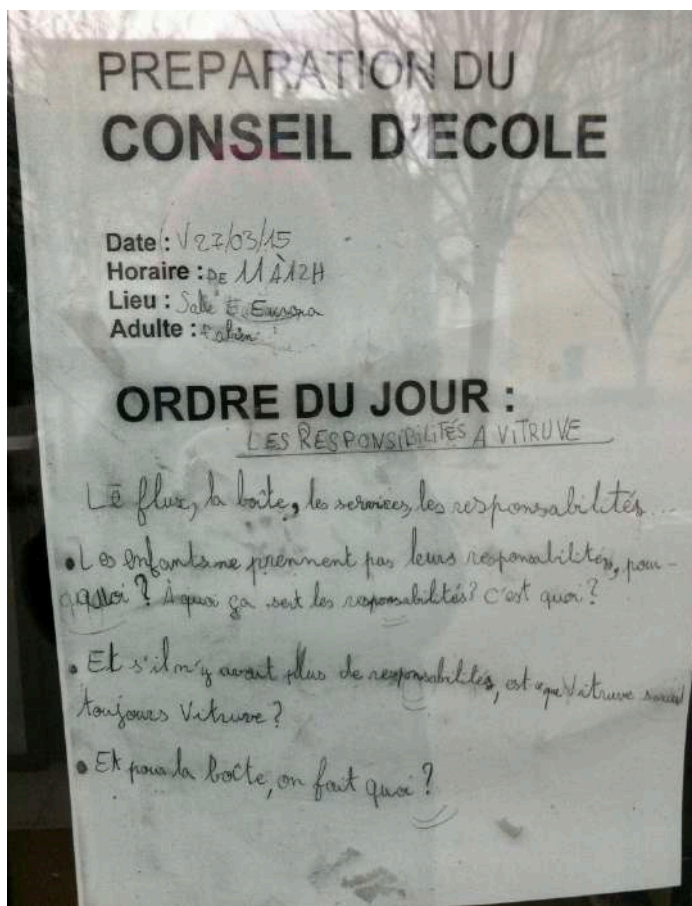 PREPARATION DU
CONSEIL D'ECOLE
Date : V 27/03/15
Horaire : DE 11 À 12H
Lieu : Salle
Adulte : Fabien
ORDRE DU JOUR :
LES RESPONSIBILITÉS A VITRUVE
Le flux, la boîte, les services, les responsabilités...
• Les enfants ne prennent pas leurs responsabilités, pour-
quoi ? À quoi ça sert les responsabilités ? C'est quoi ?
• Et s'il n'y avait plus de responsabilités, est que Vitruve serait
toujours Vitruve ?
• Et pour la boîte, on fait quoi ?